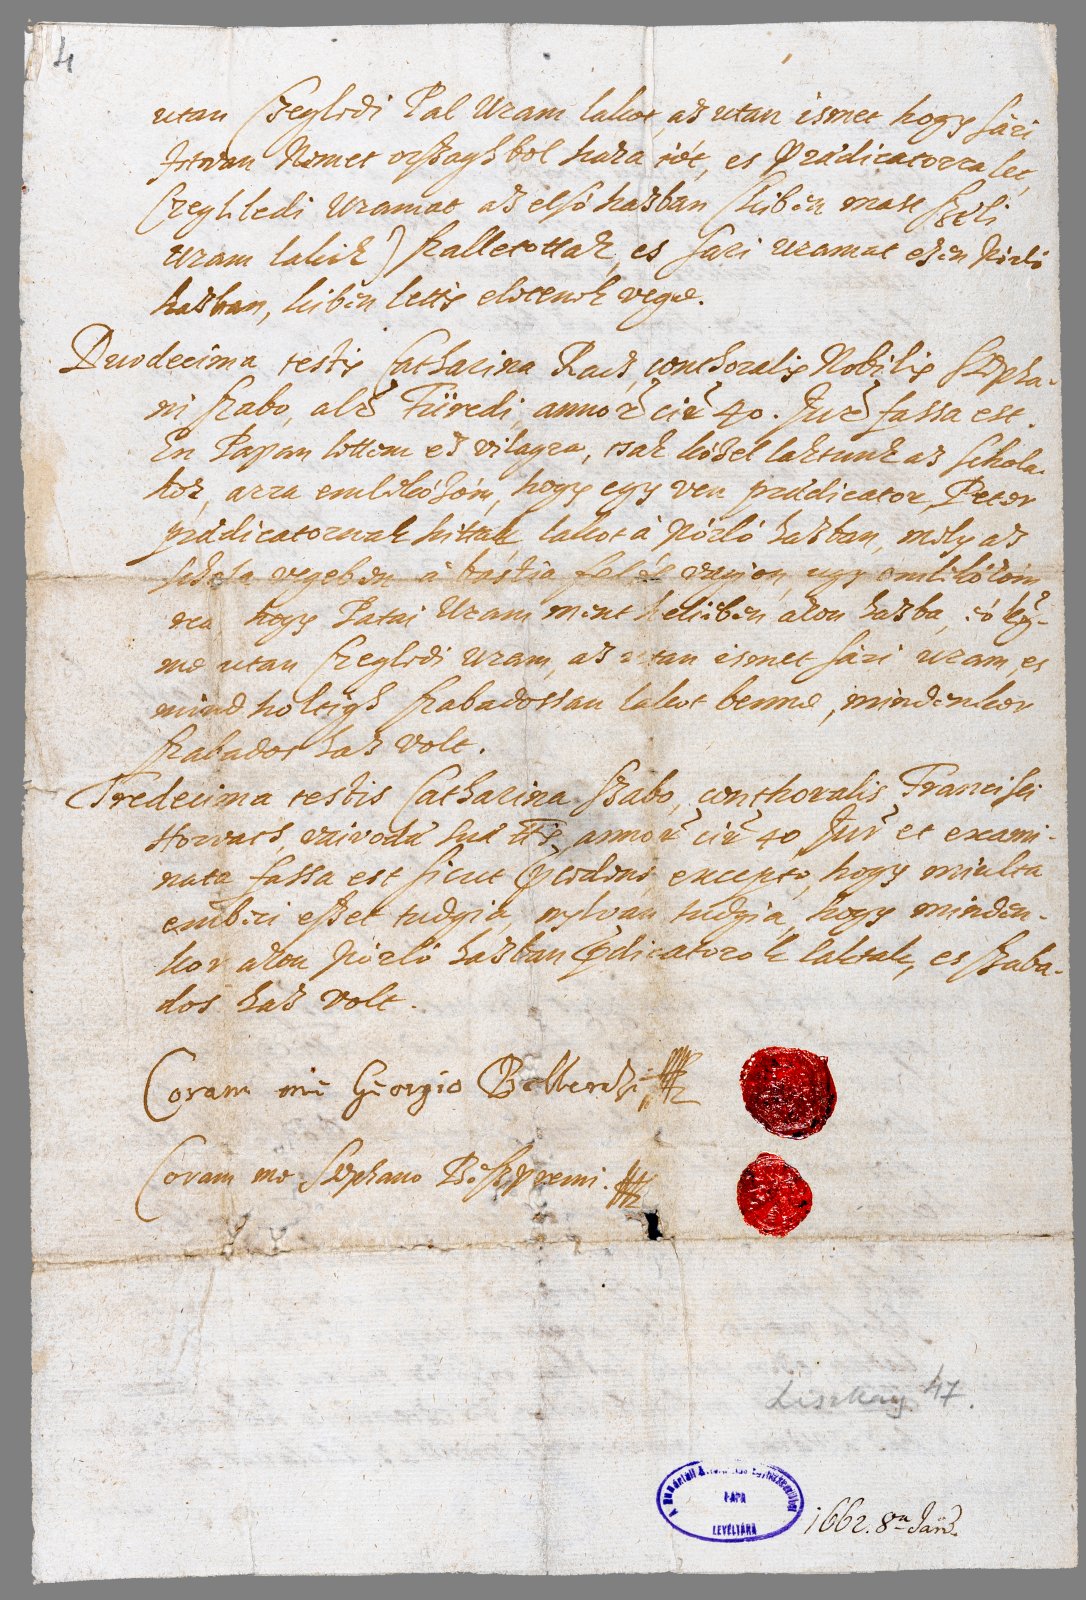 4
utan Czegledi Pal Uram lakot, az utan ismet hogy Sári
Istvan Nemet orszagh bol haza jót, es Prædicatorra let,
Czeghledi Uramat az elsó hazban (kiben mast Széli
Uram lakik) szalletottak, es Sari Uramat ezen Pórló
hazban, kiben lettis eletenek vege.
Duodecima testis Catharina Racz, conthoralis Nobilis Stepha-
ni Szabo, alr Füredi, annor cir 40. Jur fassa est.
En Papan lottem ez vilagra, csak kózel laktunk az schola-
hoz, arra emlekózóm, hogy egy ven prædicator, Peter
prædicatornak hittak lakot á Pórló hazban, mely az
schola vegeben á bastia feléé vagion, ugy emlekózóm
rea hogy Patai Uram ment helieben azon hazba, ó kg-
me utan Czegledi Uram, az utan ismet Sári Uram, es
mind holtigh szabadossan lakot benne, mindenkor
szabados haz volt.
Tredecima testis Catharina Szabo, conthoralis Francisci
Horvath, vaivodæ annor cir 40 Jur et exami-
nata fassa est sicut excepto, hogy miulta
emberi eszet tudgia, nylvan tudgia, hogy minden-
kor azon Pórló hazban Pdicatorok laktak, es szaba-
dos haz volt.
Coram me Georgio
Coram me Stephano Beszpremi.
Liszkay 47.
PÁPA
LEVÉLTÁRA
1662. 8va Jan.